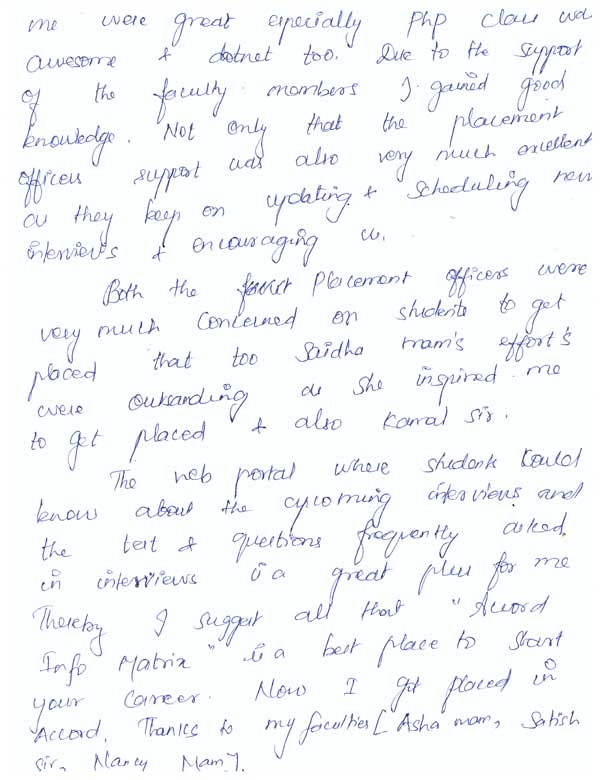 me were great especially PhP class was
awesome & dotnet too. Due to the support
of the faculty members I gained good
knowledge. Not only that the placement
officers support was also very much excellent
as they keep on updating & scheduling new
interviews & encouraging us.
Both the Placement officers were
very much concerned on students to get
placed that too Saidha mam's effort's
were outsanding as she inspired me
to get placed & also Kamal sir.
The web portal where students could
know about the upcoming interviews and
the test & questions frequently asked
in interviews is a great plus for me
Thereby I suggest all that "Accord
Info Matrix" is a best place to start
your career. Now I got placed in
Accord. Thanks to my faculties [Asha mam, Satish
sir, Nancy Mam].